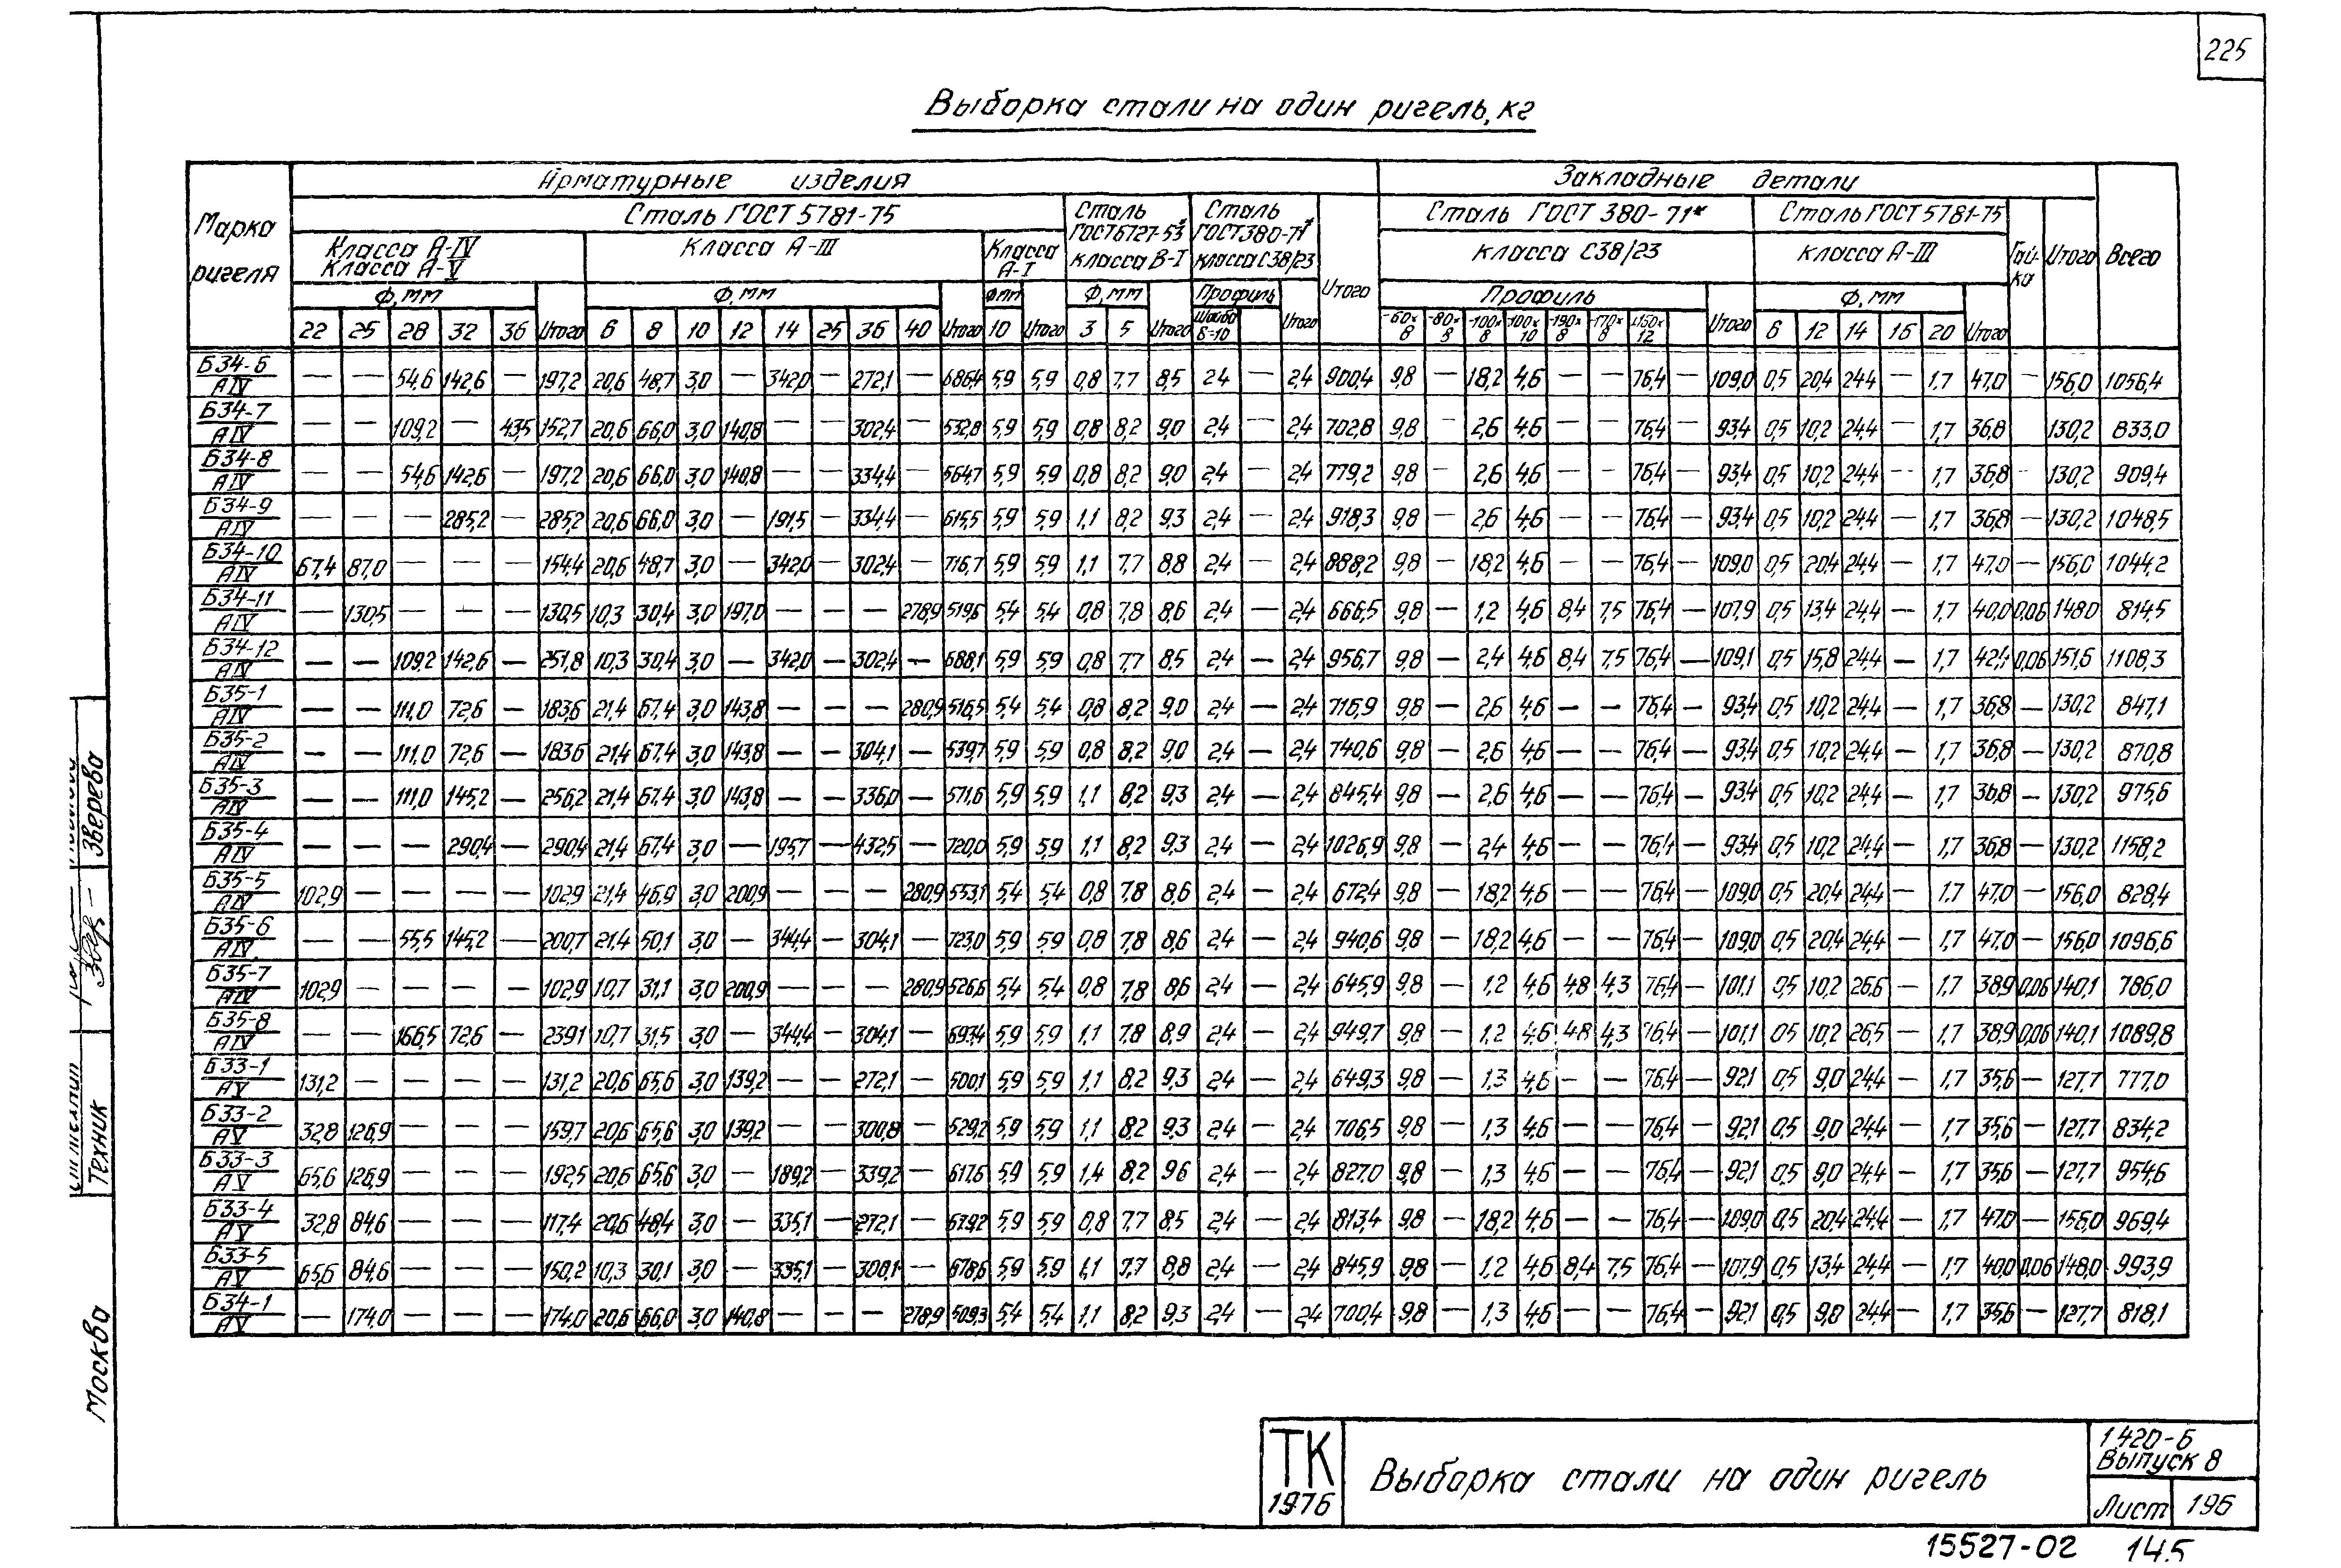 225
Выборка стали на один ригель, кг
Марка ригеля
Арматурные изделия
Закладные детали
Сталь ГОСТ 5781-75
Сталь ГОСТ 6727-53* класса В-I
Сталь ГОСТ 380-71* класса С38/23
Итого
Сталь ГОСТ 380-71*
Сталь ГОСТ 5781-75
Гайка
Итого
Всего
Класса А-IV
Класса А-V
Класса А-III
Класса А-I
класса С38/23
класса А-III
Ф, мм
Ф, мм
Ф мм
Ф, мм
Профиль
Профиль
Ф, мм
22 25 28 32 36 Итого 6 8 10 12 14 25 36 40 Итого 10 Итого 3 5 Итого Шайба δ=10 Итого -60×8 -80×8 -100×8 -100×10 -190×8 -170×8 -150×12 Итого 6 12 14 16 20 Итого
Б34-6 АIV — — 54,6 142,6 — 197,2 20,6 48,7 3,0 — 342,0 — 272,1 — 686,4 5,9 5,9 0,8 7,7 8,5 2,4 — 2,4 900,4 9,8 — 18,2 4,6 — — 76,4 — 109,0 0,5 20,4 24,4 — 1,7 47,0 — 156,0 1056,4
Б34-7 АIV — — 109,2 — 43,5 152,7 20,6 66,0 3,0 140,8 — — 302,4 — 532,8 5,9 5,9 0,8 8,2 9,0 2,4 — 2,4 702,8 9,8 — 2,6 4,6 — — 76,4 — 93,4 0,5 10,2 24,4 — 1,7 36,8 130,2 833,0
Б34-8 АIV — — 54,6 142,6 — 197,2 20,6 66,0 3,0 140,8 — — 334,4 — 564,7 5,9 5,9 0,8 8,2 9,0 2,4 — 2,4 779,2 9,8 — 2,6 4,6 — — 76,4 — 93,4 0,5 10,2 24,4 — 1,7 36,8 — 130,2 909,4
Б34-9 АIV — — — 285,2 — 285,2 20,6 66,0 3,0 — 191,5 — 334,4 — 615,5 5,9 5,9 1,1 8,2 9,3 2,4 — 2,4 918,3 9,8 — 2,6 4,6 — — 76,4 — 93,4 0,5 10,2 24,4 — 1,7 36,8 — 130,2 1048,5
Б34-10 АIV 67,4 87,0 — — — 154,4 20,6 48,7 3,0 — 342,0 — 302,4 — 716,7 5,9 5,9 1,1 7,7 8,8 2,4 — 2,4 888,2 9,8 — 18,2 4,6 — — 76,4 — 109,0 0,5 20,4 24,4 — 1,7 47,0 — 156,0 1044,2
Б34-11 АIV — 130,5 — — — 130,5 10,3 30,4 3,0 197,0 — — — 278,9 519,6 5,4 5,4 0,8 7,8 8,6 2,4 — 2,4 666,5 9,8 — 1,2 4,6 8,4 7,5 76,4 — 107,9 0,5 13,4 24,4 — 1,7 40,0 0,06 148,0 814,5
Б34-12 АIV — — 109,2 142,6 — 251,8 10,3 30,4 3,0 — 342,0 — 302,4 — 688,1 5,9 5,9 0,8 7,7 8,5 2,4 — 2,4 956,7 9,8 — 2,4 4,6 8,4 7,5 76,4 — 109,1 0,5 15,8 24,4 — 1,7 42,4 0,06 151,6 1108,3
Б35-1 АIV — — 111,0 72,6 — 183,6 21,4 67,4 3,0 143,8 — — — 280,9 516,5 5,4 5,4 0,8 8,2 9,0 2,4 — 2,4 716,9 9,8 — 2,6 4,6 — — 76,4 — 93,4 0,5 10,2 24,4 — 1,7 36,8 — 130,2 847,1
Б35-2 АIV — — 111,0 72,6 — 183,6 21,4 67,4 3,0 143,8 — — 304,1 — 539,7 5,9 5,9 0,8 8,2 9,0 2,4 — 2,4 740,6 9,8 — 2,6 4,6 — — 76,4 — 93,4 0,5 10,2 24,4 — 1,7 36,8 — 130,2 870,8
Б35-3 АIV — — 111,0 145,2 — 256,2 21,4 67,4 3,0 143,8 — — 336,0 — 571,6 5,9 5,9 1,1 8,2 9,3 2,4 — 2,4 845,4 9,8 — 2,6 4,6 — — 76,4 — 93,4 0,5 10,2 24,4 — 1,7 36,8 — 130,2 975,6
Б35-4 АIV — — — 290,4 — 290,4 21,4 67,4 3,0 — 195,7 — 432,5 — 720,0 5,9 5,9 1,1 8,2 9,3 2,4 — 2,4 1026,9 9,8 — 2,4 4,6 — — 76,4 — 93,4 0,5 10,2 24,4 — 1,7 36,8 — 130,2 1158,2
Б35-5 АIV 102,9 — — — — 102,9 21,4 46,9 3,0 200,9 — — — 280,9 553,1 5,4 5,4 0,8 7,8 8,6 2,4 — 2,4 672,4 9,8 — 18,2 4,6 — — 76,4 — 109,0 0,5 20,4 24,4 — 1,7 47,0 — 156,0 828,4
Б35-6 АIV — — 55,5 145,2 — 200,7 21,4 50,1 3,0 — 344,4 — 304,1 — 723,0 5,9 5,9 0,8 7,8 8,6 2,4 — 2,4 940,6 9,8 — 18,2 4,6 — — 76,4 — 109,0 0,5 20,4 24,4 — 1,7 47,0 — 156,0 1096,6
Б35-7 АIV 102,9 — — — — 102,9 10,7 31,1 3,0 200,9 — — — 280,9 526,6 5,4 5,4 0,8 7,8 8,6 2,4 — 2,4 645,9 9,8 — 1,2 4,6 4,8 4,3 76,4 — 101,1 0,5 10,2 26,6 — 1,7 38,9 0,06 140,1 786,0
Б35-8 АIV — — 166,5 72,6 — 239,1 10,7 31,5 3,0 — 344,4 — 304,1 — 693,4 5,9 5,9 1,1 7,8 8,9 2,4 — 2,4 949,7 9,8 — 1,2 4,6 4,8 4,3 76,4 — 101,1 0,5 10,2 26,5 — 1,7 38,9 0,06 140,1 1089,8
Б33-1 АV 131,2 — — — — 131,2 20,6 65,6 3,0 139,2 — — 272,1 — 500,1 5,9 5,9 1,1 8,2 9,3 2,4 — 2,4 649,3 9,8 — 1,3 4,6 — — 76,4 — 92,1 0,5 9,0 24,4 — 1,7 35,6 — 127,7 777,0
Б33-2 АV 32,8 126,9 — — — 159,7 20,6 65,6 3,0 139,2 — — 300,8 — 529,2 5,9 5,9 1,1 8,2 9,3 2,4 — 2,4 706,5 9,8 — 1,3 4,6 — — 76,4 — 92,1 0,5 9,0 24,4 — 1,7 35,6 — 127,7 834,2
Б33-3 АV 65,6 126,9 — — — 192,5 20,6 65,6 3,0 — 189,2 — 339,2 — 617,6 5,9 5,9 1,4 8,2 9,6 2,4 — 2,4 827,0 9,8 — 1,3 4,6 — — 76,4 — 92,1 0,5 9,0 24,4 — 1,7 35,6 — 127,7 954,6
Б33-4 АV 32,8 84,6 — — — 117,4 20,6 48,4 3,0 — 335,1 — 272,1 — 679,2 5,9 5,9 0,8 7,7 8,5 2,4 — 2,4 813,4 9,8 — 18,2 4,6 — — 76,4 — 109,0 0,5 20,4 24,4 — 1,7 47,0 — 156,0 969,4
Б33-5 АV 65,6 84,6 — — — 150,2 10,3 30,1 3,0 — 335,1 — 300,1 — 678,6 5,9 5,9 1,1 7,7 8,8 2,4 — 2,4 845,9 9,8 — 1,2 4,6 8,4 7,5 76,4 — 107,9 0,5 13,4 24,4 — 1,7 40,0 0,06 148,0 993,9
Б34-1 АV — 174,0 — — — 174,0 20,6 66,0 3,0 140,8 — — — 278,9 509,3 5,4 5,4 1,1 8,2 9,3 2,4 — 2,4 700,4 9,8 — 1,3 4,6 — — 76,4 — 92,1 0,5 9,0 24,4 — 1,7 35,6 — 127,7 818,1
Зверева
Техник
Москва
ТК
1976
Выборка стали на один ригель
1.420-6
Выпуск 8
Лист 196
15527-02 145